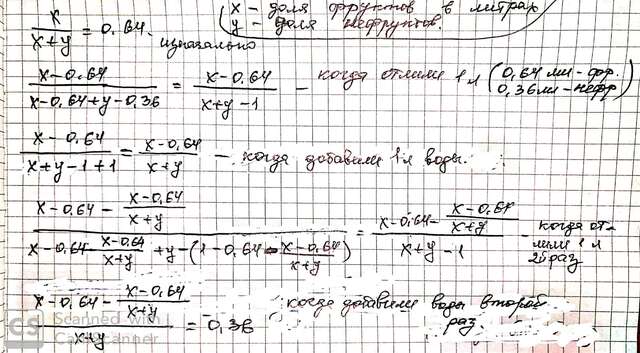 x - доля фруктов в литрах
y - доля нефруктов.
x/(x+y) = 0,64. изначально
(x-0,64)/(x-0,64+y-0,36) = (x-0,64)/(x+y-1) - когда отлили 1 л (0,64 ли - фр. 0,36 ли - нефр)
(x-0,64)/(x+y-1+1) = (x-0,64)/(x+y) - когда добавили 1 л воды.
(x-0,64 - (x-0,64)/(x+y))/(x-0,64 - (x-0,64)/(x+y) + y - (1-0,64 - (x-0,64)/(x+y))) = (x-0,64 - (x-0,64)/(x+y))/(x+y-1) - когда отлили 1 л 2й раз
(x-0,64 - (x-0,64)/(x+y))/(x+y) = 0,36 когда добавили воды второй раз
CS Scanned with CamScanner